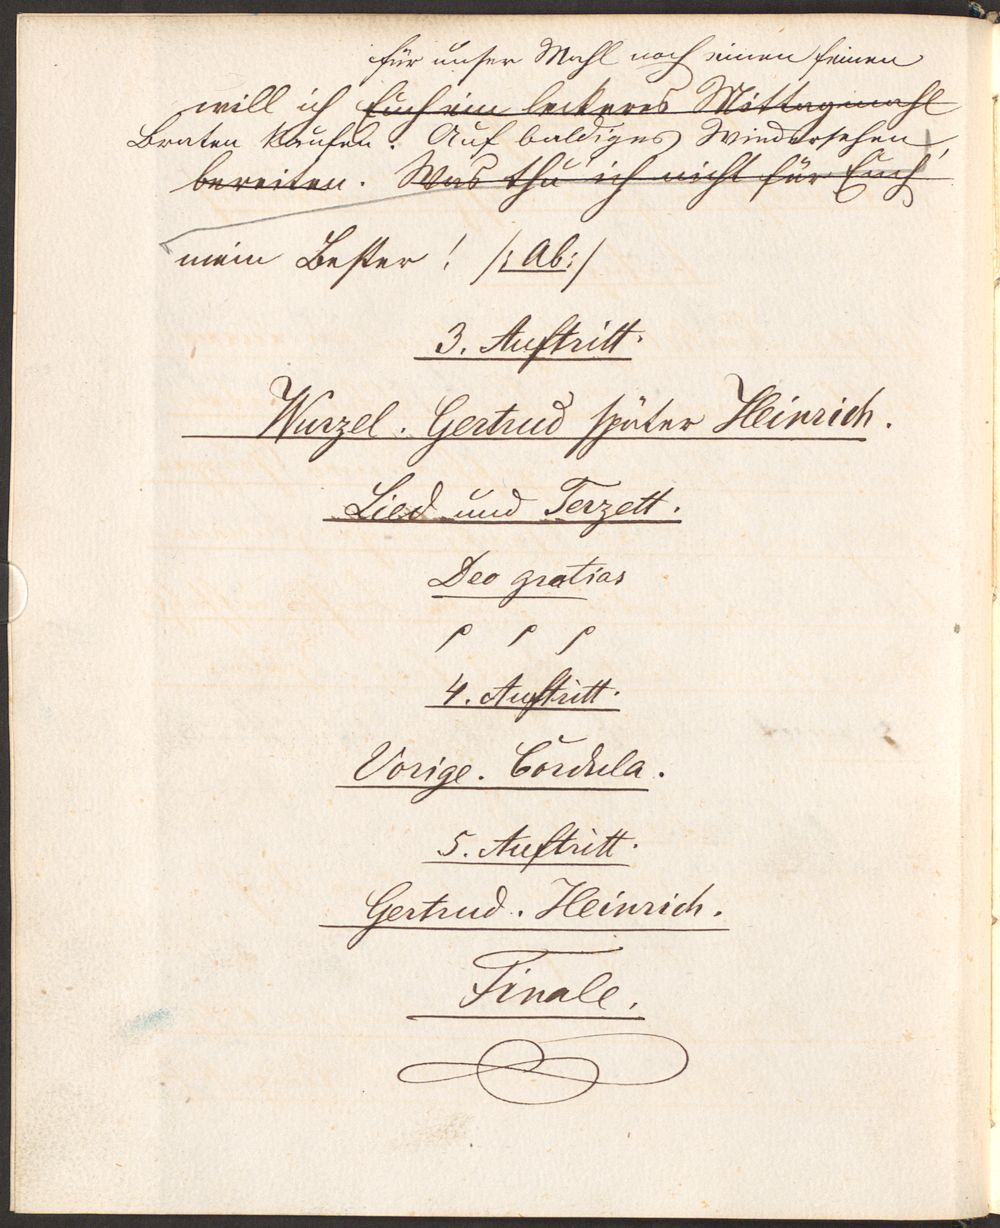 für unser Mahl noch einen feinen
will ich Euch ein leckeres Mittagmahl
Braten kaufen. Auf baldiges Wiedersehen,
bereiten. Was thu ich nicht für Euch
mein Bester! /: Ab :/
3. Auftritt.
Wurzel. Gertrud später Heinrich.
Lied und Terzett.
Deo gratias
4. Auftritt.
Vorige. Cordula.
5. Auftritt.
Gertrud. Heinrich.
Finale.